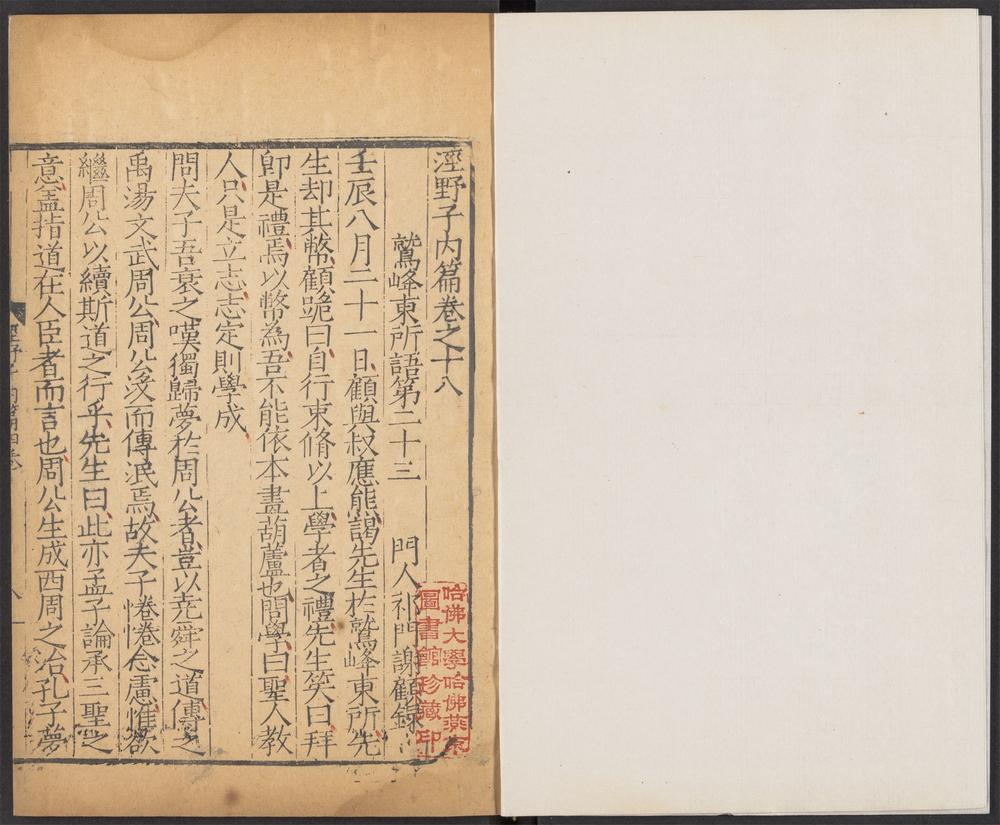 涇野子内篇卷之十八
鷲峰東所語第二十三 門人祁門謝顧錄
壬辰八月二十一日顧與叔應熊謁先生於鷲峰東所先
生却其幣顧跪曰自行束脩以上學者之禮先生笑曰拜
卽是禮焉以幣為吾不能依本畫葫蘆也問學曰聖人教
人只是立志志定則學成
問夫子吾衰之嘆獨歸夢於周公者豈以堯舜之道傳之
禹湯文武周公周公沒而傳泯焉故夫子惓惓念慮惟欲
繼周公以續斯道之行乎先生曰此亦孟子論承三聖之
意盖指道在人臣者而言也周公生成西周之治孔子夢
哈佛大學哈佛燕京
圖書館珍藏印